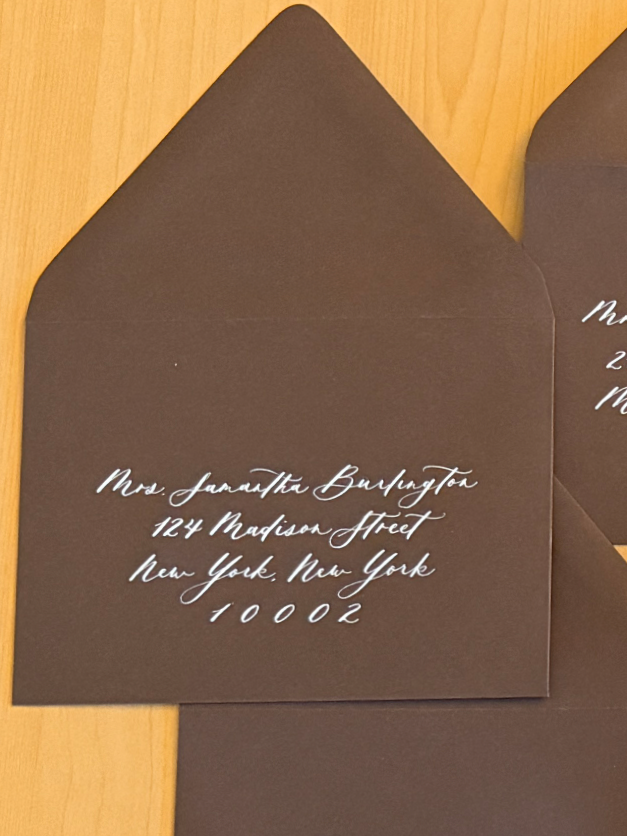 Mrs. Samantha Burlington
124 Madison Street
New York, New York
10002
2